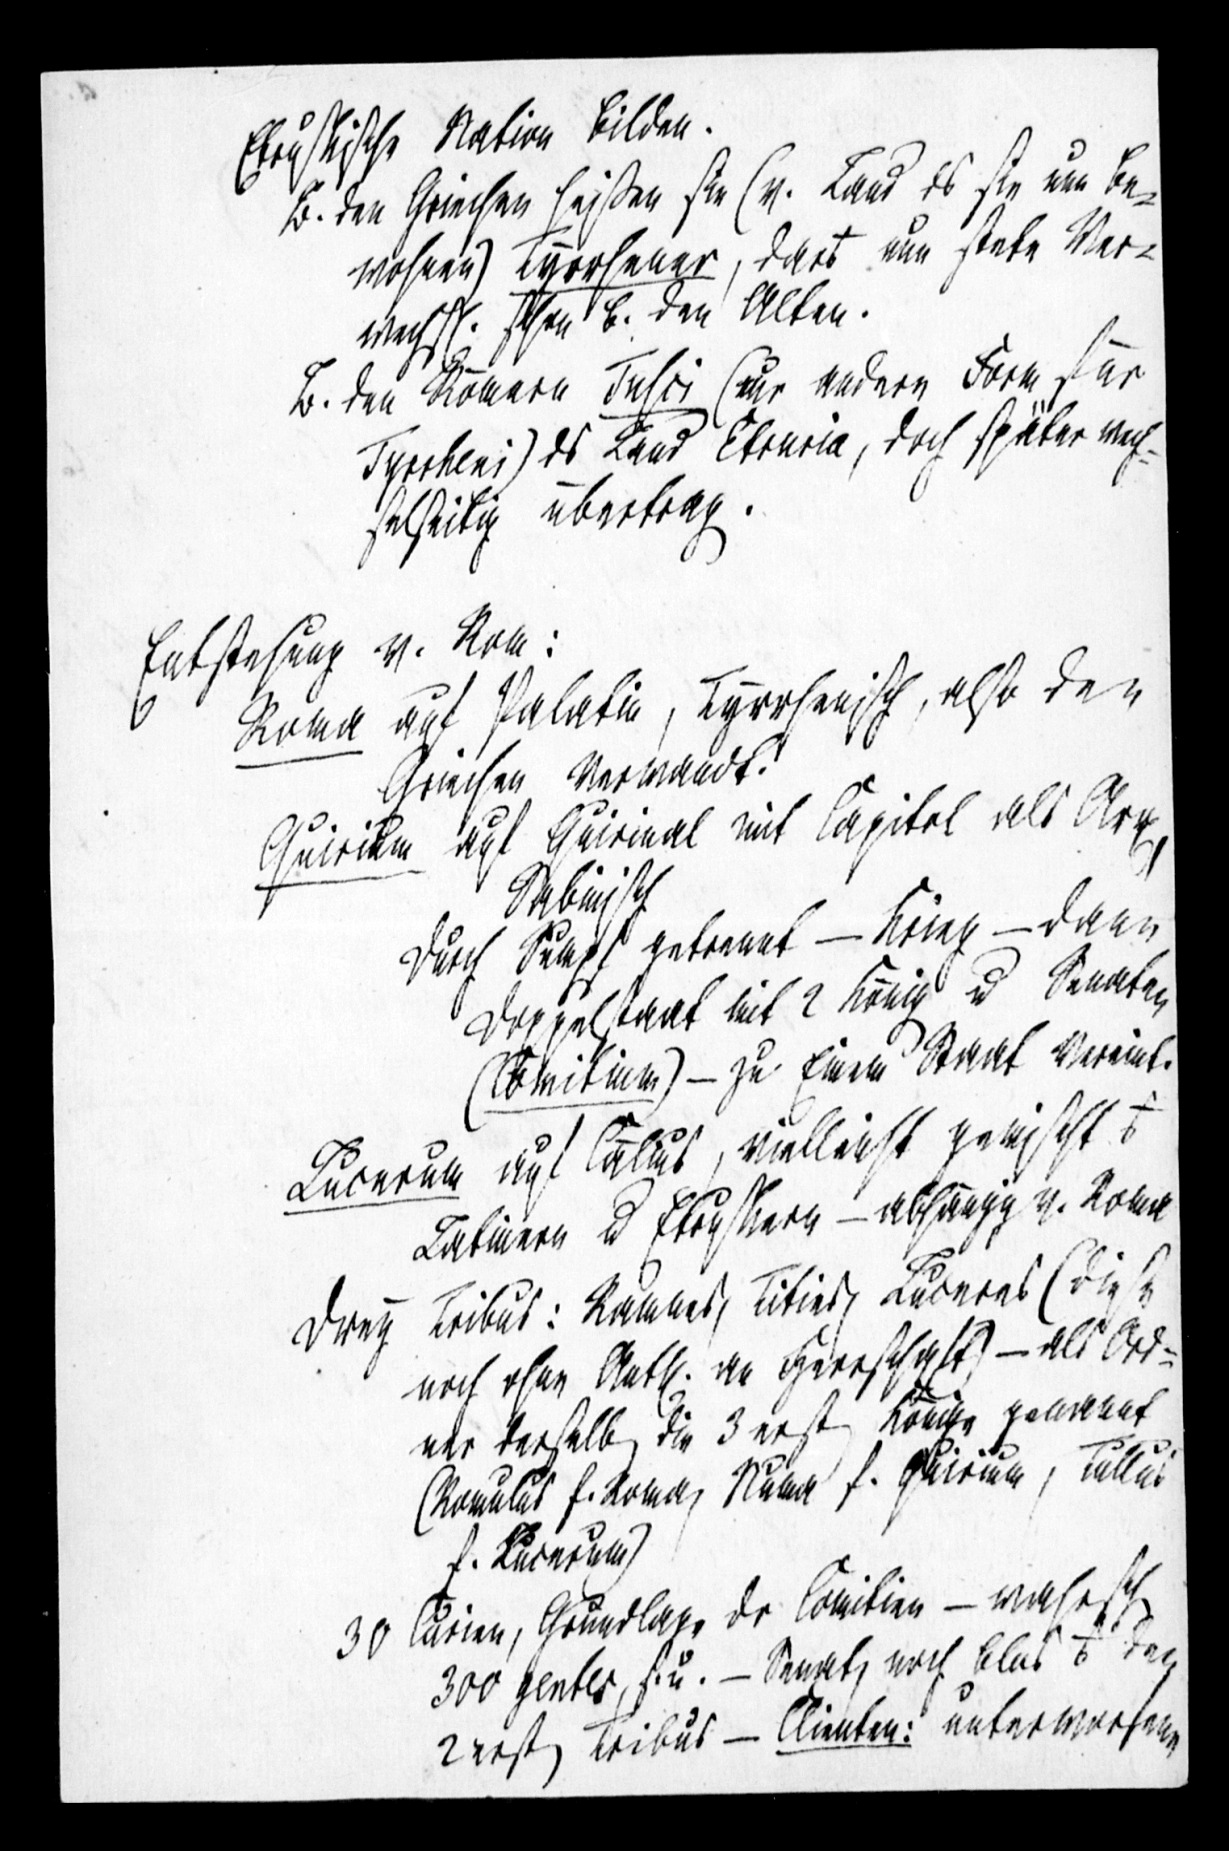 Etruskische Nation bilden.
B. den Griechen heißen sie (v. Land ds sie nun be-
wohnen) Tyrrhener, dar nun stete Ver-
wechsl. schon b. den Alten.
B. den Römern Tusci (nur andere Form für
Tyrrheni) ds Land Etruria, doch später wech-
selseitig übertrag.
Entstehung v. Rom:
Roma auf Palatin, Tyrrhenisch, also den
Griechen verwandt.
Quirium auf Quirinal mit Capitol als Arx,
Sabinisch
durch Sumpf getrennt – Krieg – dann
Doppelstaat mit 2 König u Senaten
(Comitium) – zu Einem Staat vereint.
Lucerum auf Cälius, vielleicht gemischt
Latinern u Etruskern – abhängig v. Roma
Drey Tribus: Ramnes, Tities, Luceres (diese
noch ohne Anth. an Herrschaft) – als Ord-
ner derselb, die 3 erst Könige genannt
(Romulus f. Roma, Numa f. Quirium, Tullus
f. Lucerum)
30 Curien, Grundlage der Comitien – wahrsch
300 gentes, s. u. – Senat, noch blos den
2 erst, Tribus – Clienten: unterworfene